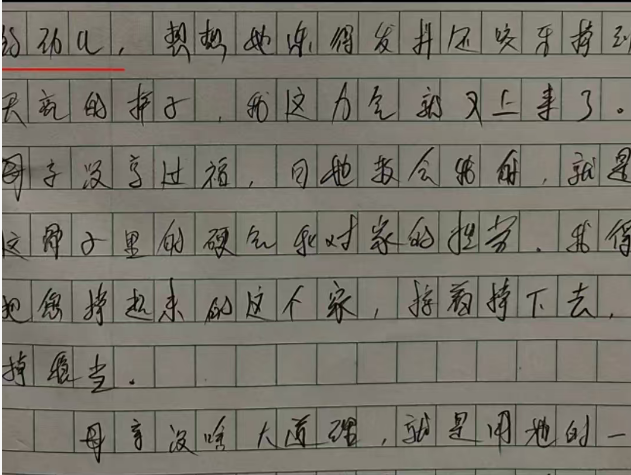 的劲儿，想想她冻得发抖还咬牙撑到
天亮的样子，我这力气就又上来了。
母亲没享过福，可她教会我的，就是
这骨子里的硬气和对家的担当。我得
把撑起来的这个家，接着撑下去，
撑稳当。
母亲没啥大道理，就是用她的一